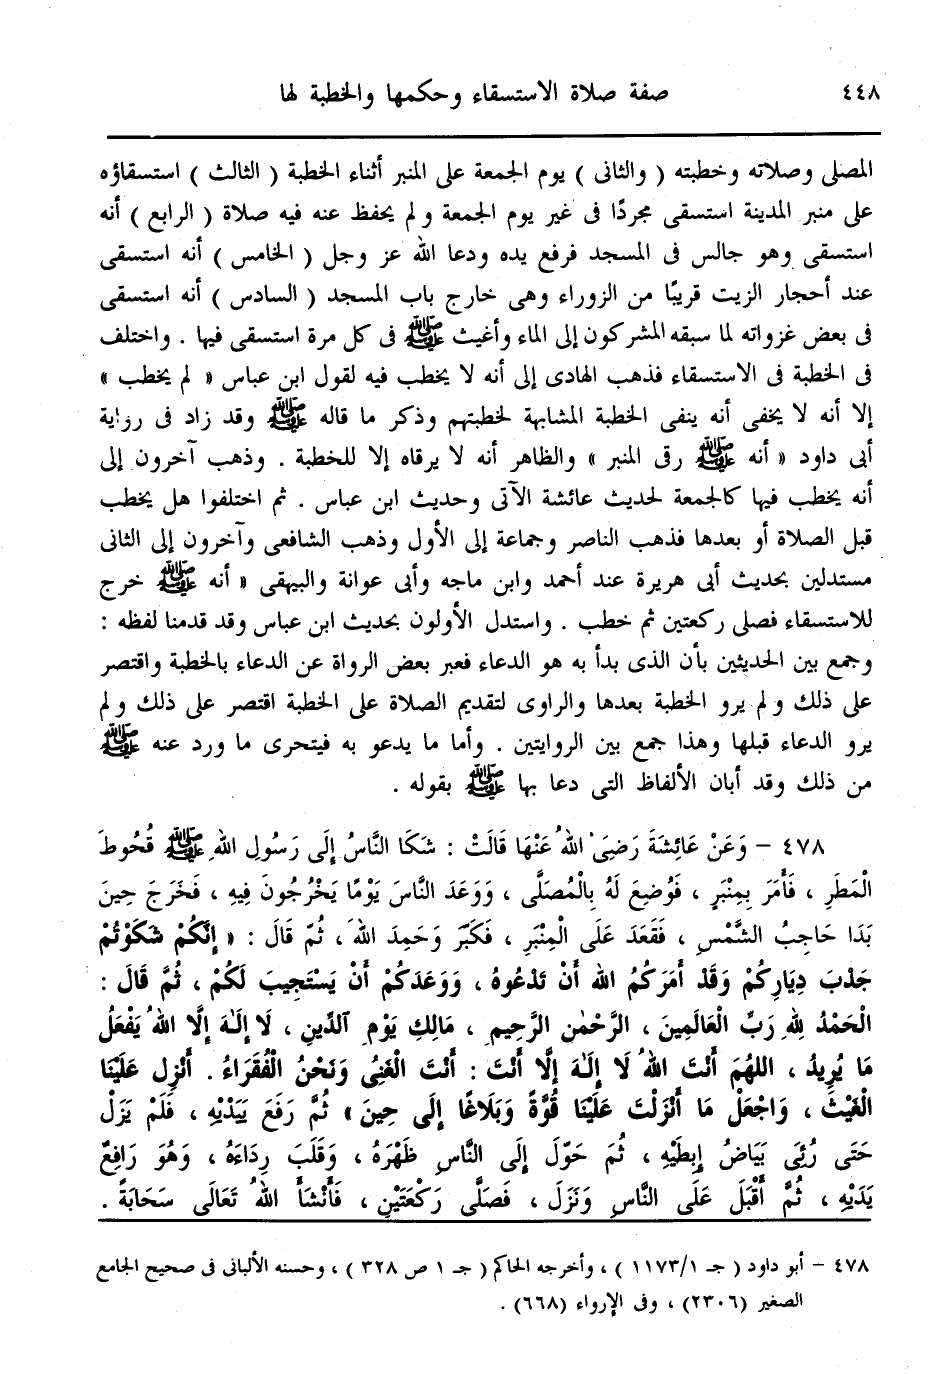 ٤٤٨ صفة صلاة الاستسقاء وحكمها والخطبة لها
المصلى وصلاته وخطبته ( والثانى ) يوم الجمعة على المنبر أثناء الخطبة ( الثالث ) استسقاؤه
على منبر المدينة استسقى مجردًا فى غير يوم الجمعة ولم يحفظ عنه فيه صلاة ( الرابع ) أنه
استسقى وهو جالس فى المسجد فرفع يده ودعا الله عز وجل ( الخامس ) أنه استسقى
عند أحجار الزيت قريبًا من الزوراء وهى خارج باب المسجد ( السادس ) أنه استسقى
فى بعض غزواته لما سبقه المشركون إلى الماء وأغيث ﷺ فى كل مرة استسقى فيها . واختلف
فى الخطبة فى الاستسقاء فذهب الهادى إلى أنه لا يخطب فيه لقول ابن عباس « لم يخطب »
إلا أنه لا يخفى أنه ينفى الخطبة المشابهة لخطبتهم وذكر ما قاله ﷺ وقد زاد فى رواية
أبى داود « أنه ﷺ رقى المنبر » والظاهر أنه لا يرقاه إلا للخطبة . وذهب آخرون إلى
أنه يخطب فيها كالجمعة لحديث عائشة الآتى وحديث ابن عباس . ثم اختلفوا هل يخطب
قبل الصلاة أو بعدها فذهب الناصر وجماعة إلى الأول وذهب الشافعى وآخرون إلى الثانى
مستدلين بحديث أبى هريرة عند أحمد وابن ماجه وأبى عوانة والبيهقى « أنه ﷺ خرج
للاستسقاء فصلى ركعتين ثم خطب . واستدل الأولون بحديث ابن عباس وقد قدمنا لفظه :
وجمع بين الحديثين بأن الذى بدأ به هو الدعاء فعبر بعض الرواة عن الدعاء بالخطبة واقتصر
على ذلك ولم يرو الخطبة بعدها والراوى لتقديم الصلاة على الخطبة اقتصر على ذلك ولم
يرو الدعاء قبلها وهذا جمع بين الروايتين . وأما ما يدعو به فيتحرى ما ورد عنه ﷺ
من ذلك وقد أبان الألفاظ التى دعا بها ﷺ بقوله .
٤٧٨ – وَعَنْ عَائِشَةَ رَضِىَ اللهُ عَنْهَا قَالَتْ : شَكَا النَّاسُ إِلَى رَسُولِ اللهِ ﷺ قُحُوطَ
الْمَطَرِ ، فَأَمَرَ بِمِنْبَرٍ ، فَوُضِعَ لَهُ بِالْمُصَلَّى ، وَوَعَدَ النَّاسَ يَوْمًا يَخْرُجُونَ فِيهِ ، فَخَرَجَ حِينَ
بَدَا حَاجِبُ الشَّمْسِ ، فَقَعَدَ عَلَى الْمِنْبَرِ ، فَكَبَّرَ وَحَمِدَ اللهَ ، ثُمَّ قَالَ : « إِنَّكُمْ شَكَوْتُمْ
جَدْبَ دِيَارِكُمْ وَقَدْ أَمَرَكُمُ الله أَنْ تَدْعُوهُ ، وَوَعَدَكُمْ أَنْ يَسْتَجِيبَ لَكُمْ ، ثُمَّ قَالَ :
الْحَمْدُ لِلهِ رَبِّ الْعَالَمِينَ ، الرَّحْمٰنِ الرَّحِيمِ ، مَالِكِ يَوْمِ آلدِّينِ ، لَا إِلٰهَ إِلَّا اللهُ يَفْعَلُ
مَا يُرِيدُ ، اللهُمَّ أَنْتَ اللهُ لَا إِلٰهَ إِلَّا أَنْتَ : أَنْتَ الْغَنِىُّ وَنَحْنُ الْفُقَرَاءُ . أَنْزِل عَلَيْنَا
الْغَيْثَ ، وَاجْعَلْ مَا أَنْزَلْتَ عَلَيْنَا قُوَّةً وَبَلَاغًا إِلَى حِينَ » ثُمَّ رَفَعَ يَيَدْيْهِ ، فَلَمْ يَزَلْ
حَتَى رُئِىَ بَيَاضُ إِبطَيْهِ ، ثُمَ حَوّلَ إِلَى النَّاسِ ظَهْرَهُ ، وَقَلَبَ رِدَاءَهُ ، وَهُوَ رَافِعٌ
يَدَيْهِ ، ثُمَّ أَقْبَلَ عَلَى النَّاسِ وَنَزَلَ ، فَصَلَّى رَكْعَتَيْنِ ، فَأَنْشَأَ اللهُ تَعَالَى سَحَابَةً .
٤٧٨ – أبو داود ( جـ ١١٧٣/١ ) ، وأخرجه الحاكم ( جـ ١ ص ٣٢٨ ) ، وحسنه الألبانى فى صحيح الجامع
الصغير (٢٣٠٦) ، وفى الإرواء (٦٦٨) .